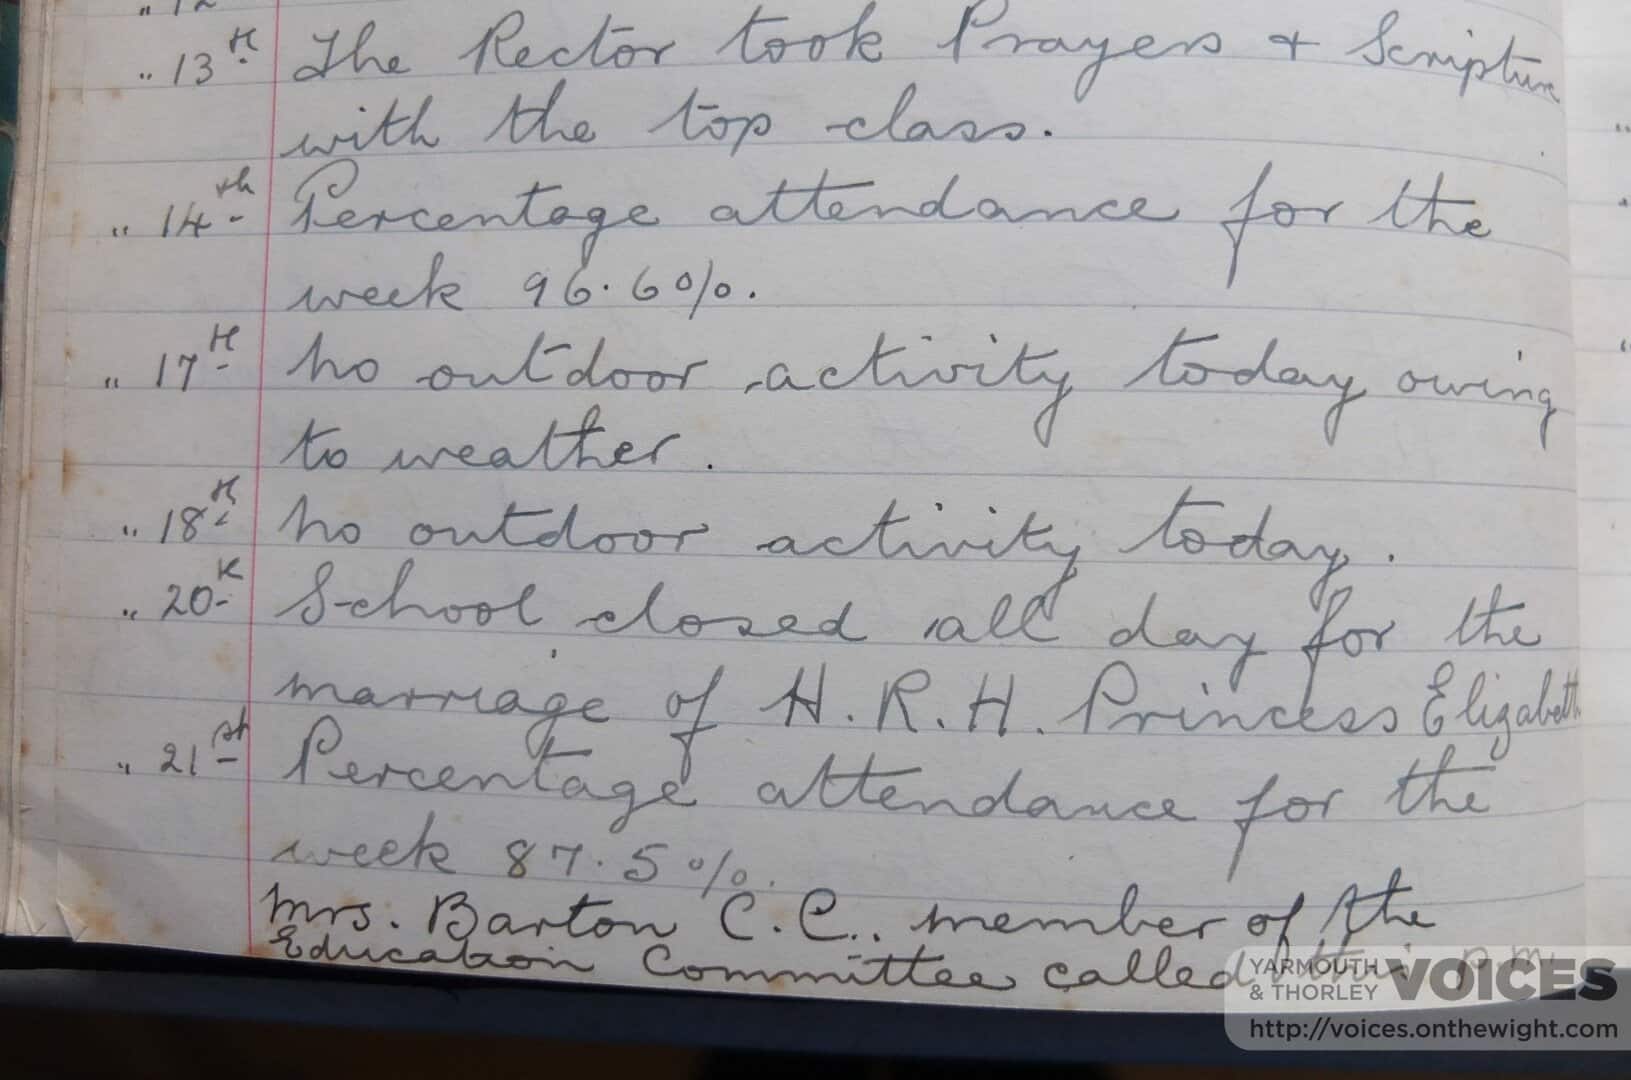 " 12
" 13th The Rector took Prayers + Scripture
with the top class.
" 14th Percentage attendance for the
week 96.6%.
" 17th No outdoor activity today owing
to weather.
" 18th No outdoor activity today.
" 20th School closed all day for the
marriage of H.R.H. Princess Elizabeth
" 21st Percentage attendance for the
week 87.5%.
Mrs. Barton C.C., member of the
Education Committee called this p.m.
YARMOUTH & THORLEY VOICES
http://voices.onthewight.com